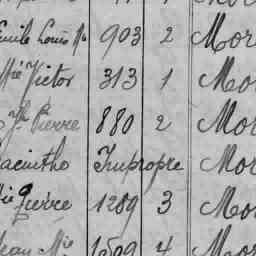 Emile Louis Mie 903 2 Mor
Mie Victor 313 1 Mor
Yh Pierre 880 2 Mor
acintho Impropre Mor
Mie Pierre 1289 3 Mor
Jean Mie 1599 4 Mor